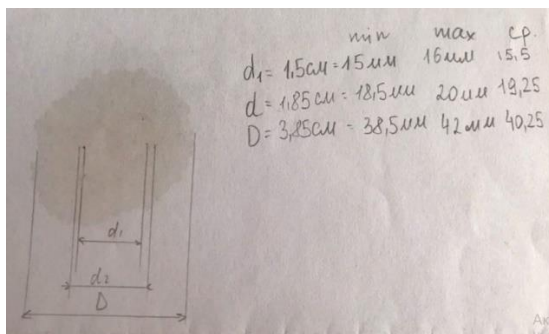 min max ср.
d₁ = 1,5см = 15мм 16мм 15,5
d = 1,85см = 18,5мм 20мм 19,25
D = 3,85см = 38,5мм 42мм 40,25
d₁
d₂
D